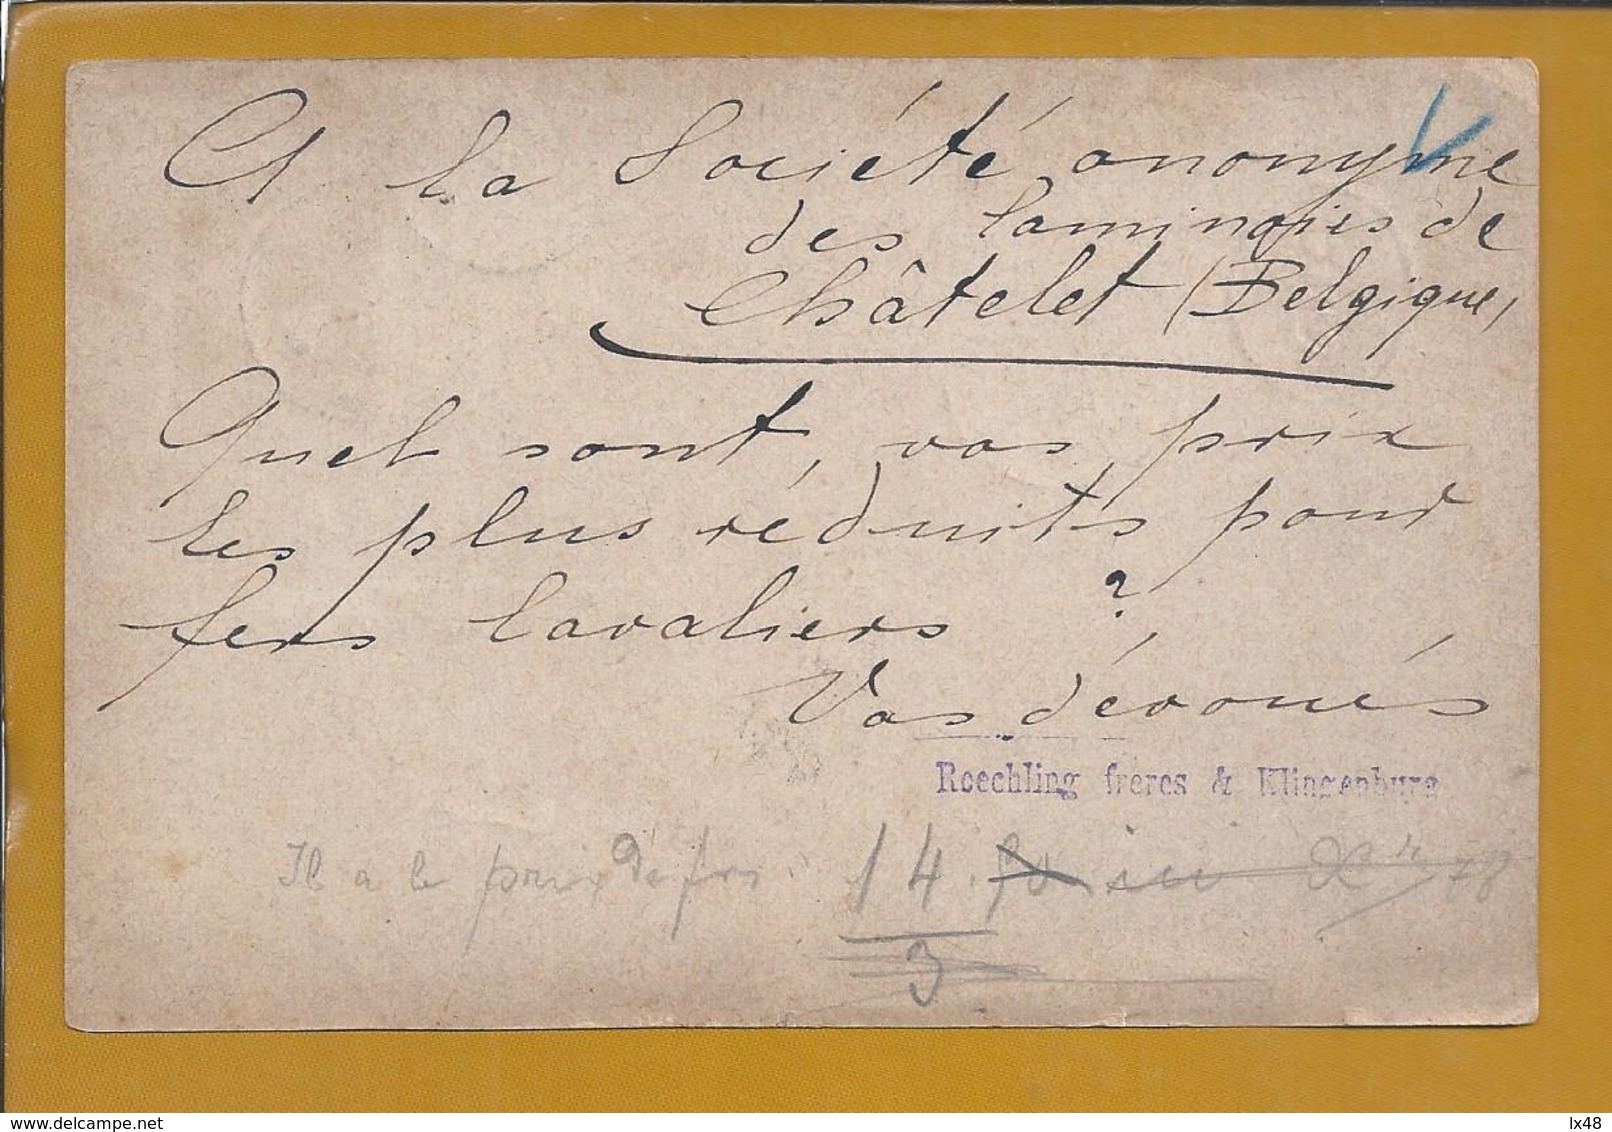 A la Société anonyme
des laminoirs de
Châtelet (Belgique)
Quel sont, vos prix
les plus réduits pour
fers Cavaliers ?
Vos dévoués
Roechling frères & Klingenburg
Il a le prix de
14
3
delcampe.net
lx48